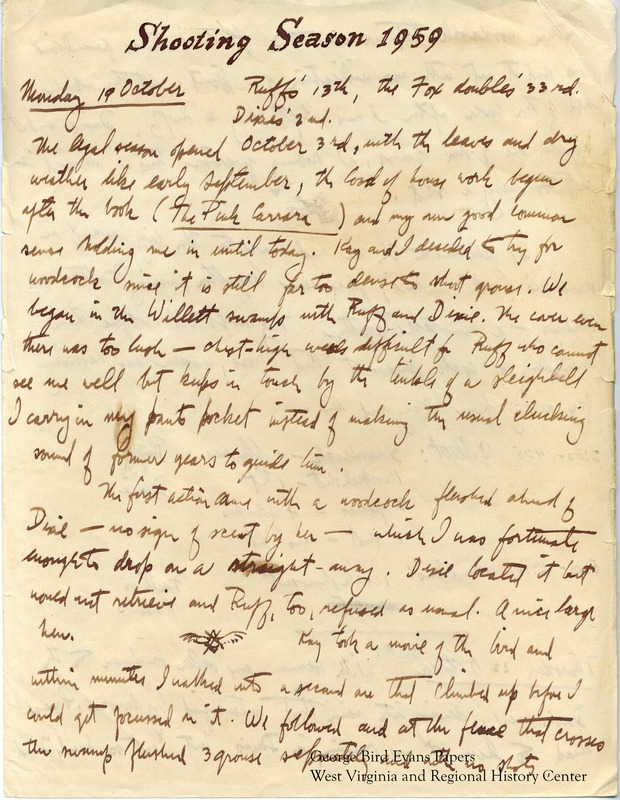 Shooting Season 1959
Monday 19 October Ruff's 13th, the Fox double's 33rd.
Dixie's 2nd.
The legal season opened October 3rd, with the leaves and dry
weather like early September, the load of house work begun
after the book (The Pink Carrara) and my own good common
sense holding me in until today. Kay and I decided to try for
woodcock since it is still far too dense to shoot grouse. We
began in the Willett swamps with Ruff and Dixie. The cover even
there was too lush — chest-high weeds difficult for Ruff who cannot
see me well but keeps in touch by the tinkle of a sleighbell
I carry in my pants pocket instead of making the usual clucking
sound of former years to guide him.
The first action came with a woodcock flushed ahead of
Dixie — no sign of scent by her — which I was fortunate
enough to drop on a straight-away. Dixie located it but
would not retrieve and Ruff, too, refused as usual. A nice large
hen. Kay took a movie of the bird and
within minutes I walked into a second one that climbed up before I
could get focussed on it. We followed and at the fence that crosses
the swamp flushed 3 grouse separately with no shots
George Bird Evans Papers
West Virginia and Regional History Center